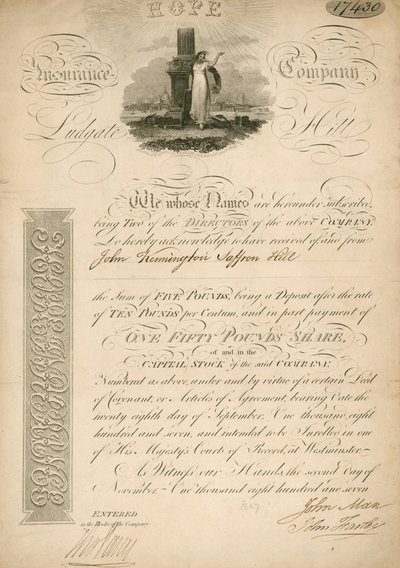 HOPE
17430
Insurance Company
Ludgate Hill
We whose Names are hereunder subscribed,
being Two of the DIRECTORS of the above COMPANY,
Do hereby acknowledge to have received of and from
John Remington Saffron Hill
the Sum of FIVE POUNDS, being a Deposit after the rate
of TEN POUNDS per Centum, and in part payment of
ONE FIFTY POUNDS SHARE,
of and in the
CAPITAL STOCK of the said COMPANY.
Numbered as above, under and by virtue of a certain Deed
of Covenant, or Articles of Agreement, bearing Date the
twenty eighth day of September, One thousand eight
hundred and seven, and intended to be Inrolled in one
of His Majesty's Courts of Record, at Westminster,—
As Witness our Hands, the second Day of
November,—One thousand eight hundred and seven
1807
John Man
John
ENTERED
in the Books of the Company